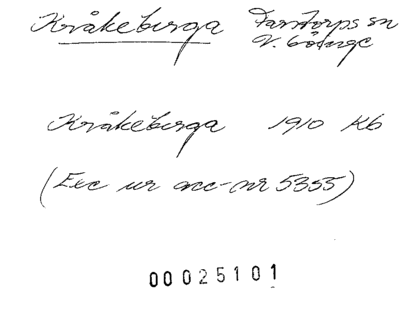 Kråkeberga Farstorps sn
V. Göinge
Kråkeberga 1910 Kb
(Exc ur acc-nr 5355)
00025101